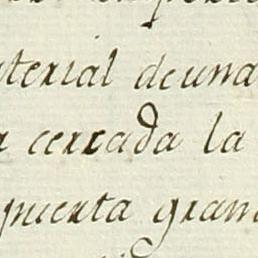 aterial de una
cerrada la
puerta gran